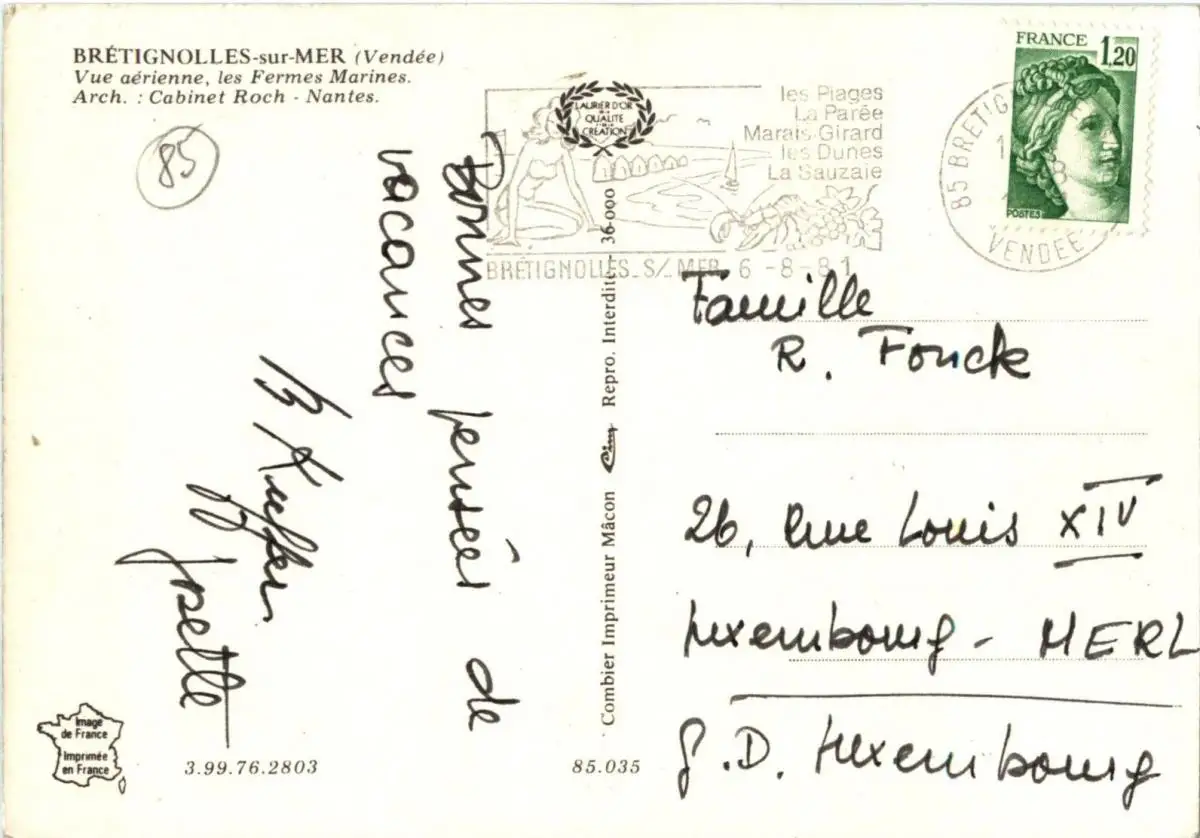 BRÉTIGNOLLES-sur-MER (Vendée)
Vue aérienne, les Fermes Marines.
Arch. : Cabinet Roch - Nantes.
85
LAURIER D'OR
DE LA
QUALITÉ
CRÉATION
les Plages
La Parée
Marais Girard
les Dunes
La Sauzaie
BRÉTIGNOLLES S/ MER 6 - 8 - 81
FRANCE 1,20
POSTES
85 BRETIG
VENDEE
Bonnes pensées de
vacances
Josette
Combier Imprimeur Mâcon Cim Repro. Interdite - 36-000
Famille
R. Fonck
26, rue Louis XIV
Luxembourg - MERL
G.D. Luxembourg
Image
de France
Imprimée
en France
3.99.76.2803
85.035